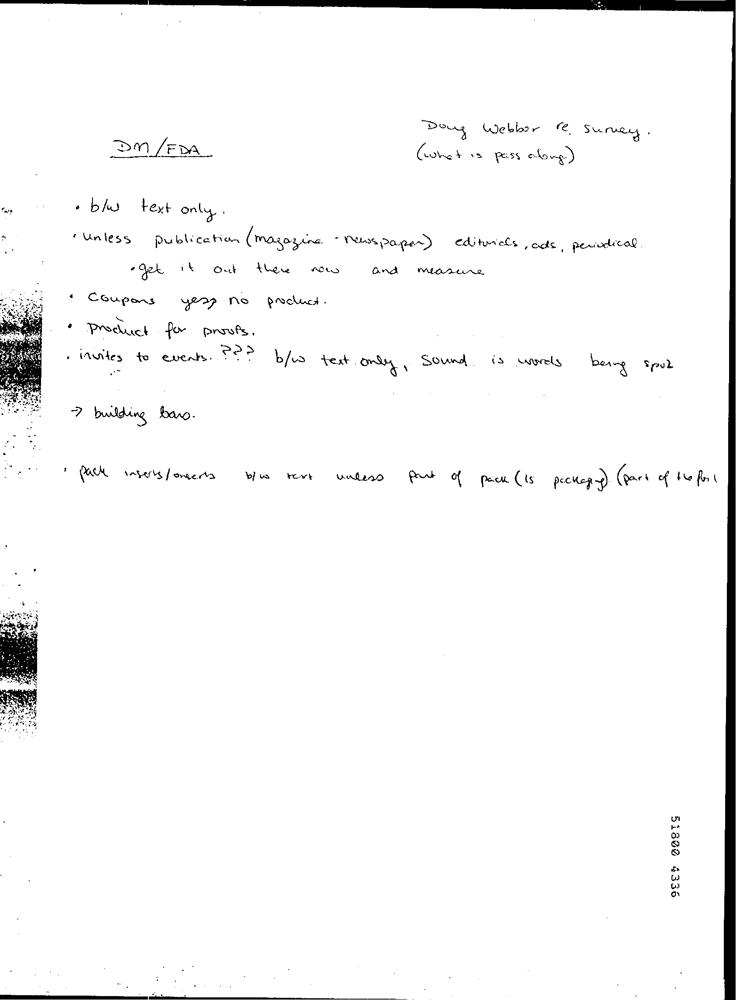 Doug Webber re. survey.
DM/FDA
(what is pass along)
• b/w text only.
• unless publication (magazine - newspaper) editorials, ads, periodical.
• get it out there now and measure
• Coupons yes, no product.
• product for proofs.
• invites to events. ??? b/w text only, sound is words being
→ building bans.
• pack inserts/onserts b/w text unless part of pack (is packaging) (part of the
51800 4336